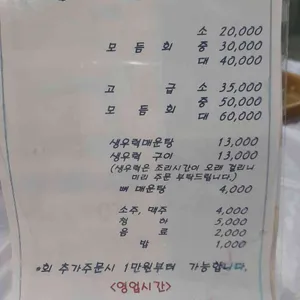 소 20,000
모 듬 회 중 30,000
대 40,000
고 급 소 35,000
모 듬 회 중 50,000
대 60,000
생우럭매운탕 13,000
생우럭 구이 13,000
(생우럭은 조리시간이 오래 걸리니
미리 주문 부탁드립니다.)
뼈 매운탕 4,000
소주, 맥주 4,000
청 하 5,000
음 료 2,000
밥 1,000
*회 추가주문시 1만원부터 가능합니다.
<영업시간>